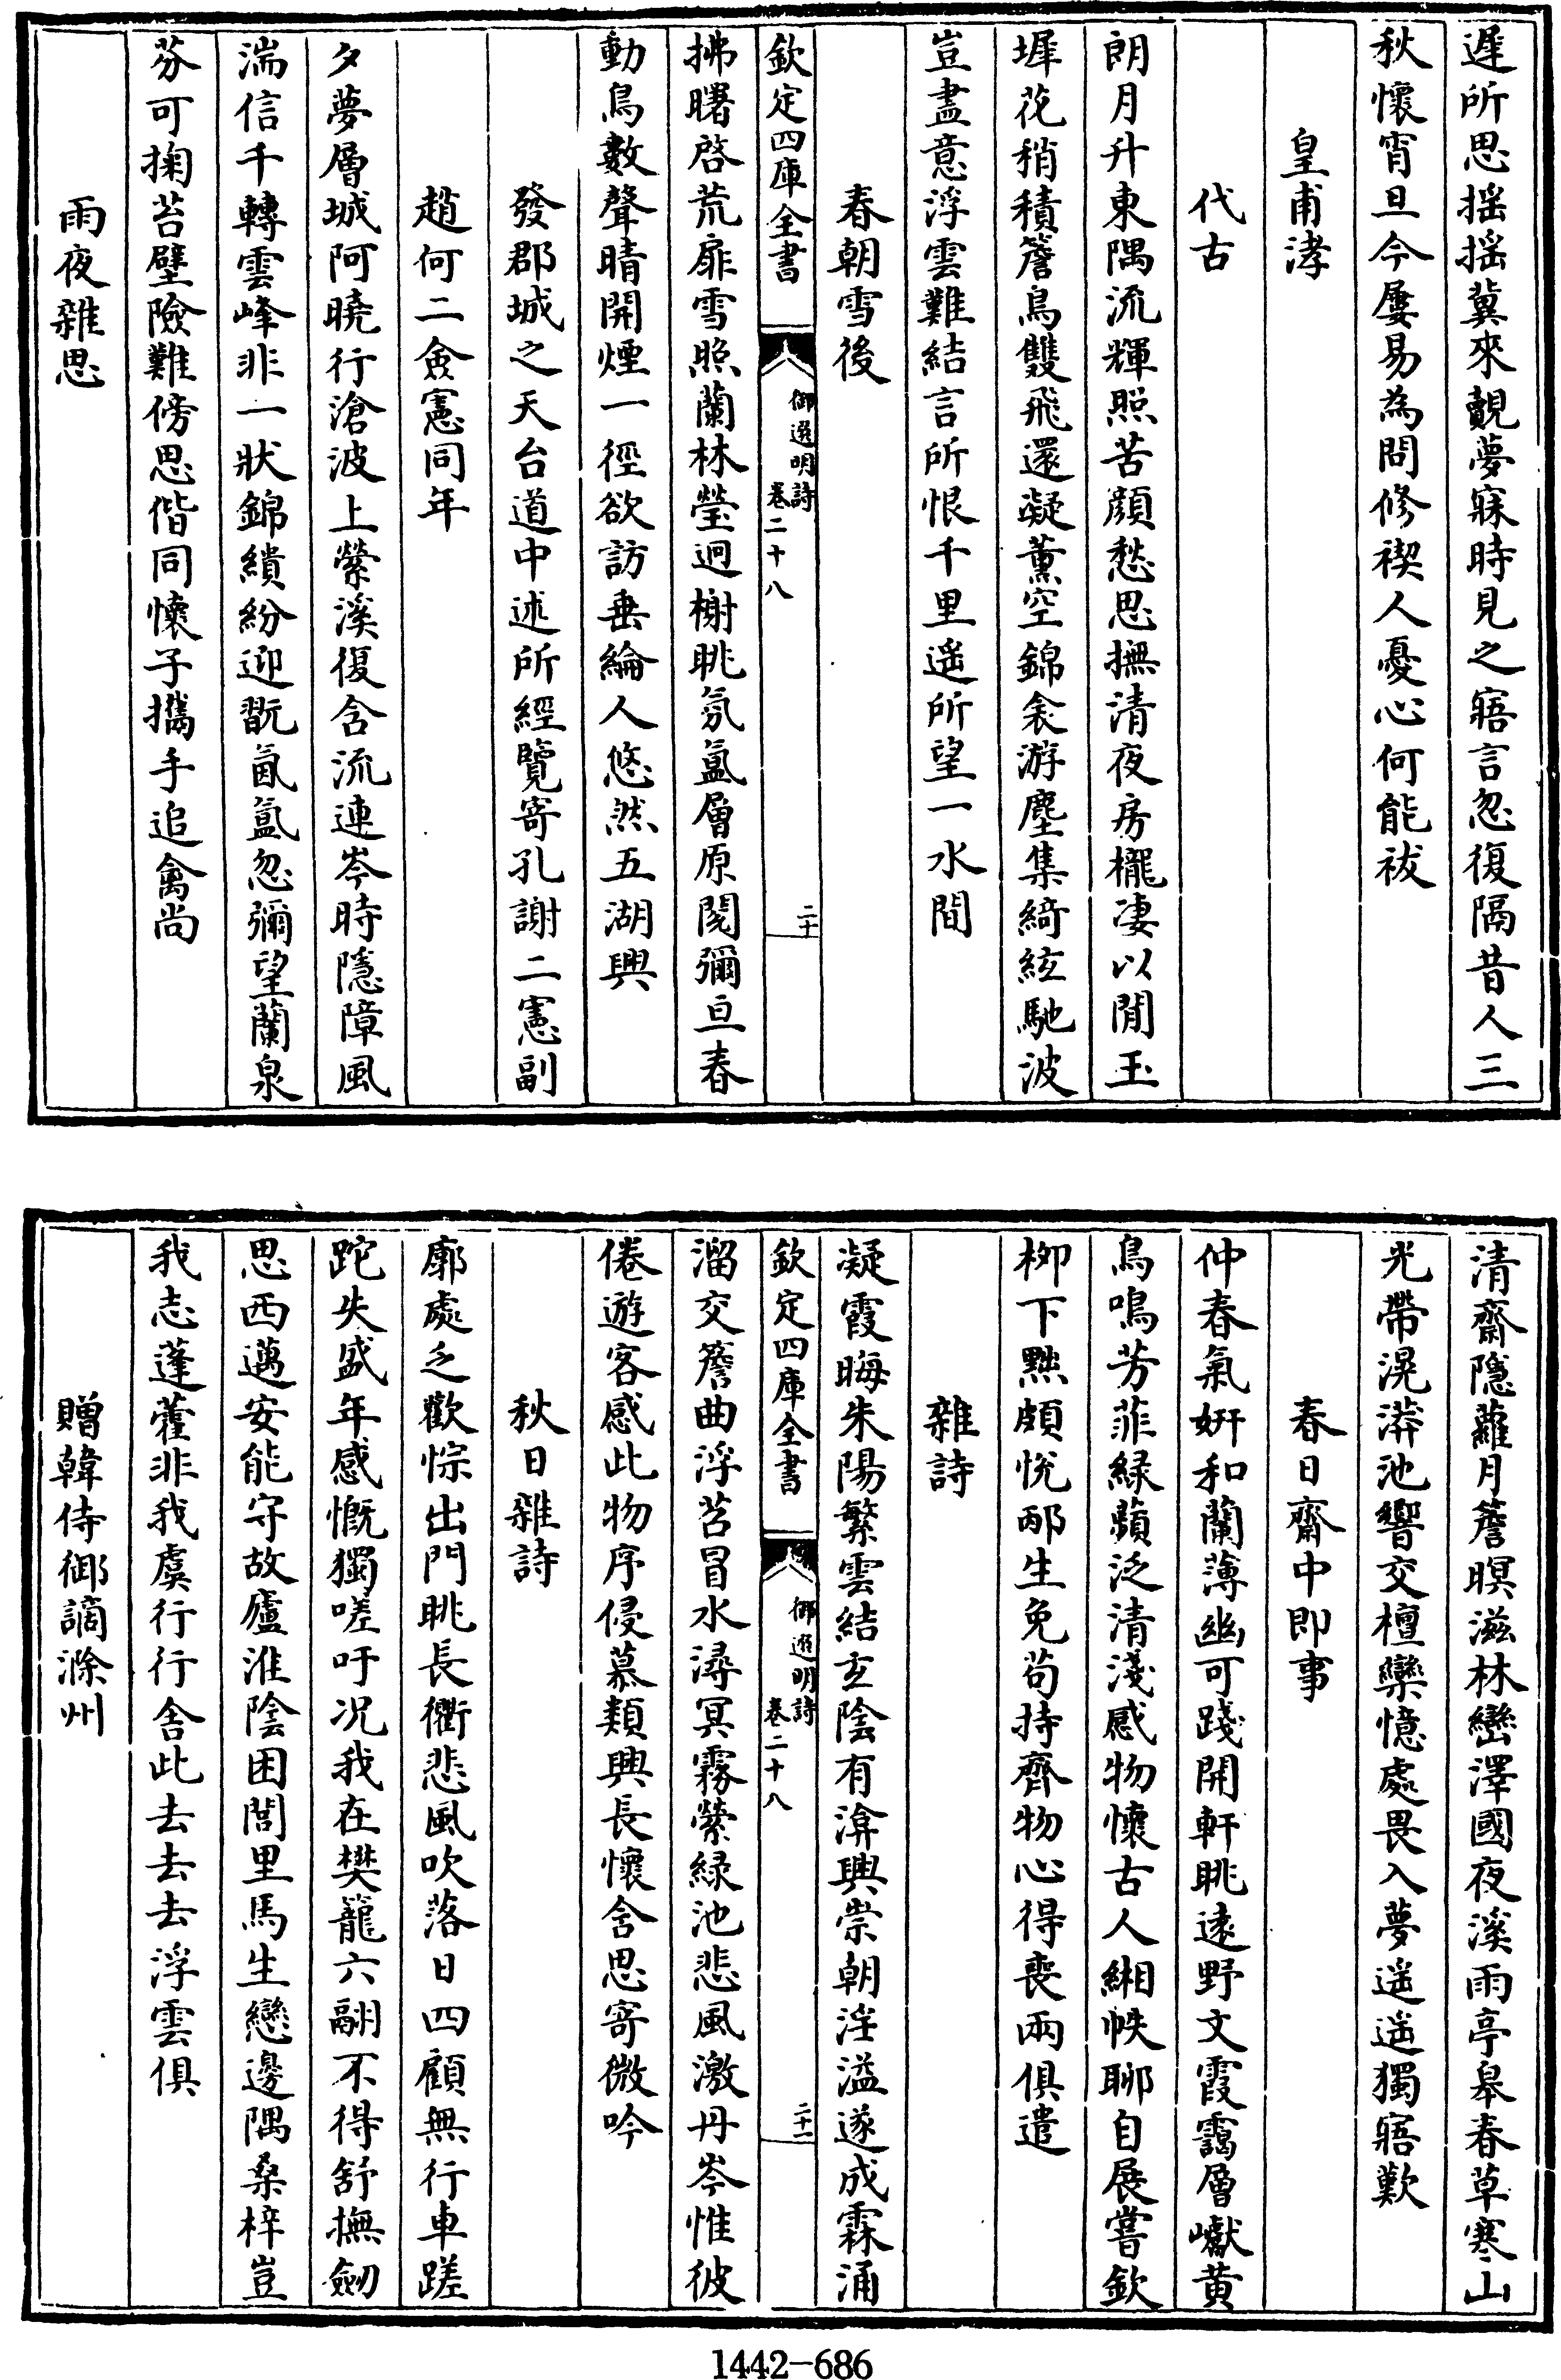 遲所思揺揺冀來覿夢寐時見之寤言忽復隔昔人三
秋懷宵旦今屢易為問修禊人憂心何能祓
皇甫涍
代古
朗月升東隅流輝照苦顔愁思撫清夜房櫳凄以閒玉
墀花稍積簷鳥雙飛還凝薰空錦衾游塵集綺絃馳波
豈盡意浮雲難結言所恨千里遥所望一水間
春朝雪後
欽定四庫全書
御選明詩
卷二十八
二十
拂曙啓荒扉雪照蘭林瑩迥榭眺氛氲層原閱彌亘春
動鳥數聲晴開煙一徑欲訪垂綸人悠然五湖興
發郡城之天台道中述所經覽寄孔謝二憲副
趙何二僉憲同年
夕夢層城阿曉行滄波上縈溪復含流連岑時隱障風
湍信千轉雲峰非一狀錦繢紛迎翫氤氲忽彌望蘭泉
芬可掬苔壁險難傍思偕同懷子攜手追禽尚
雨夜雜思
清齋隱蘿月簷暝滋林巒澤國夜溪雨亭皋春草寒山
光帶滉漭池響交檀欒憶處畏入夢遥遥獨寤歎
春日齋中即事
仲春氣妍和蘭薄幽可踐開軒眺遠野文霞靄層巘黄
鳥鳴芳菲緑蘋泛清淺感物懷古人緗帙聊自展嘗欽
柳下黜頗恱邴生免苟持齊物心得喪兩俱遣
雜詩
凝霞晦朱陽繁雲結玄陰有渰興崇朝淫溢遂成霖涌
欽定四庫全書
御選明詩
卷二十八
二十一
溜交簷曲浮苔冒水潯冥霧縈緑池悲風激丹岑惟彼
倦遊客感此物序侵慕類興長懷含思寄微吟
秋日雜詩
廓處乏歡悰出門眺長衢悲風吹落日四顧無行車蹉
跎失盛年感慨獨嗟吁况我在樊籠六翮不得舒撫劒
思西邁安能守故廬淮陰困閭里馬生戀邊隅桑梓豈
我志蓬藿非我虞行行舍此去去去浮雲俱
贈韓侍御謫滁州
1442-686